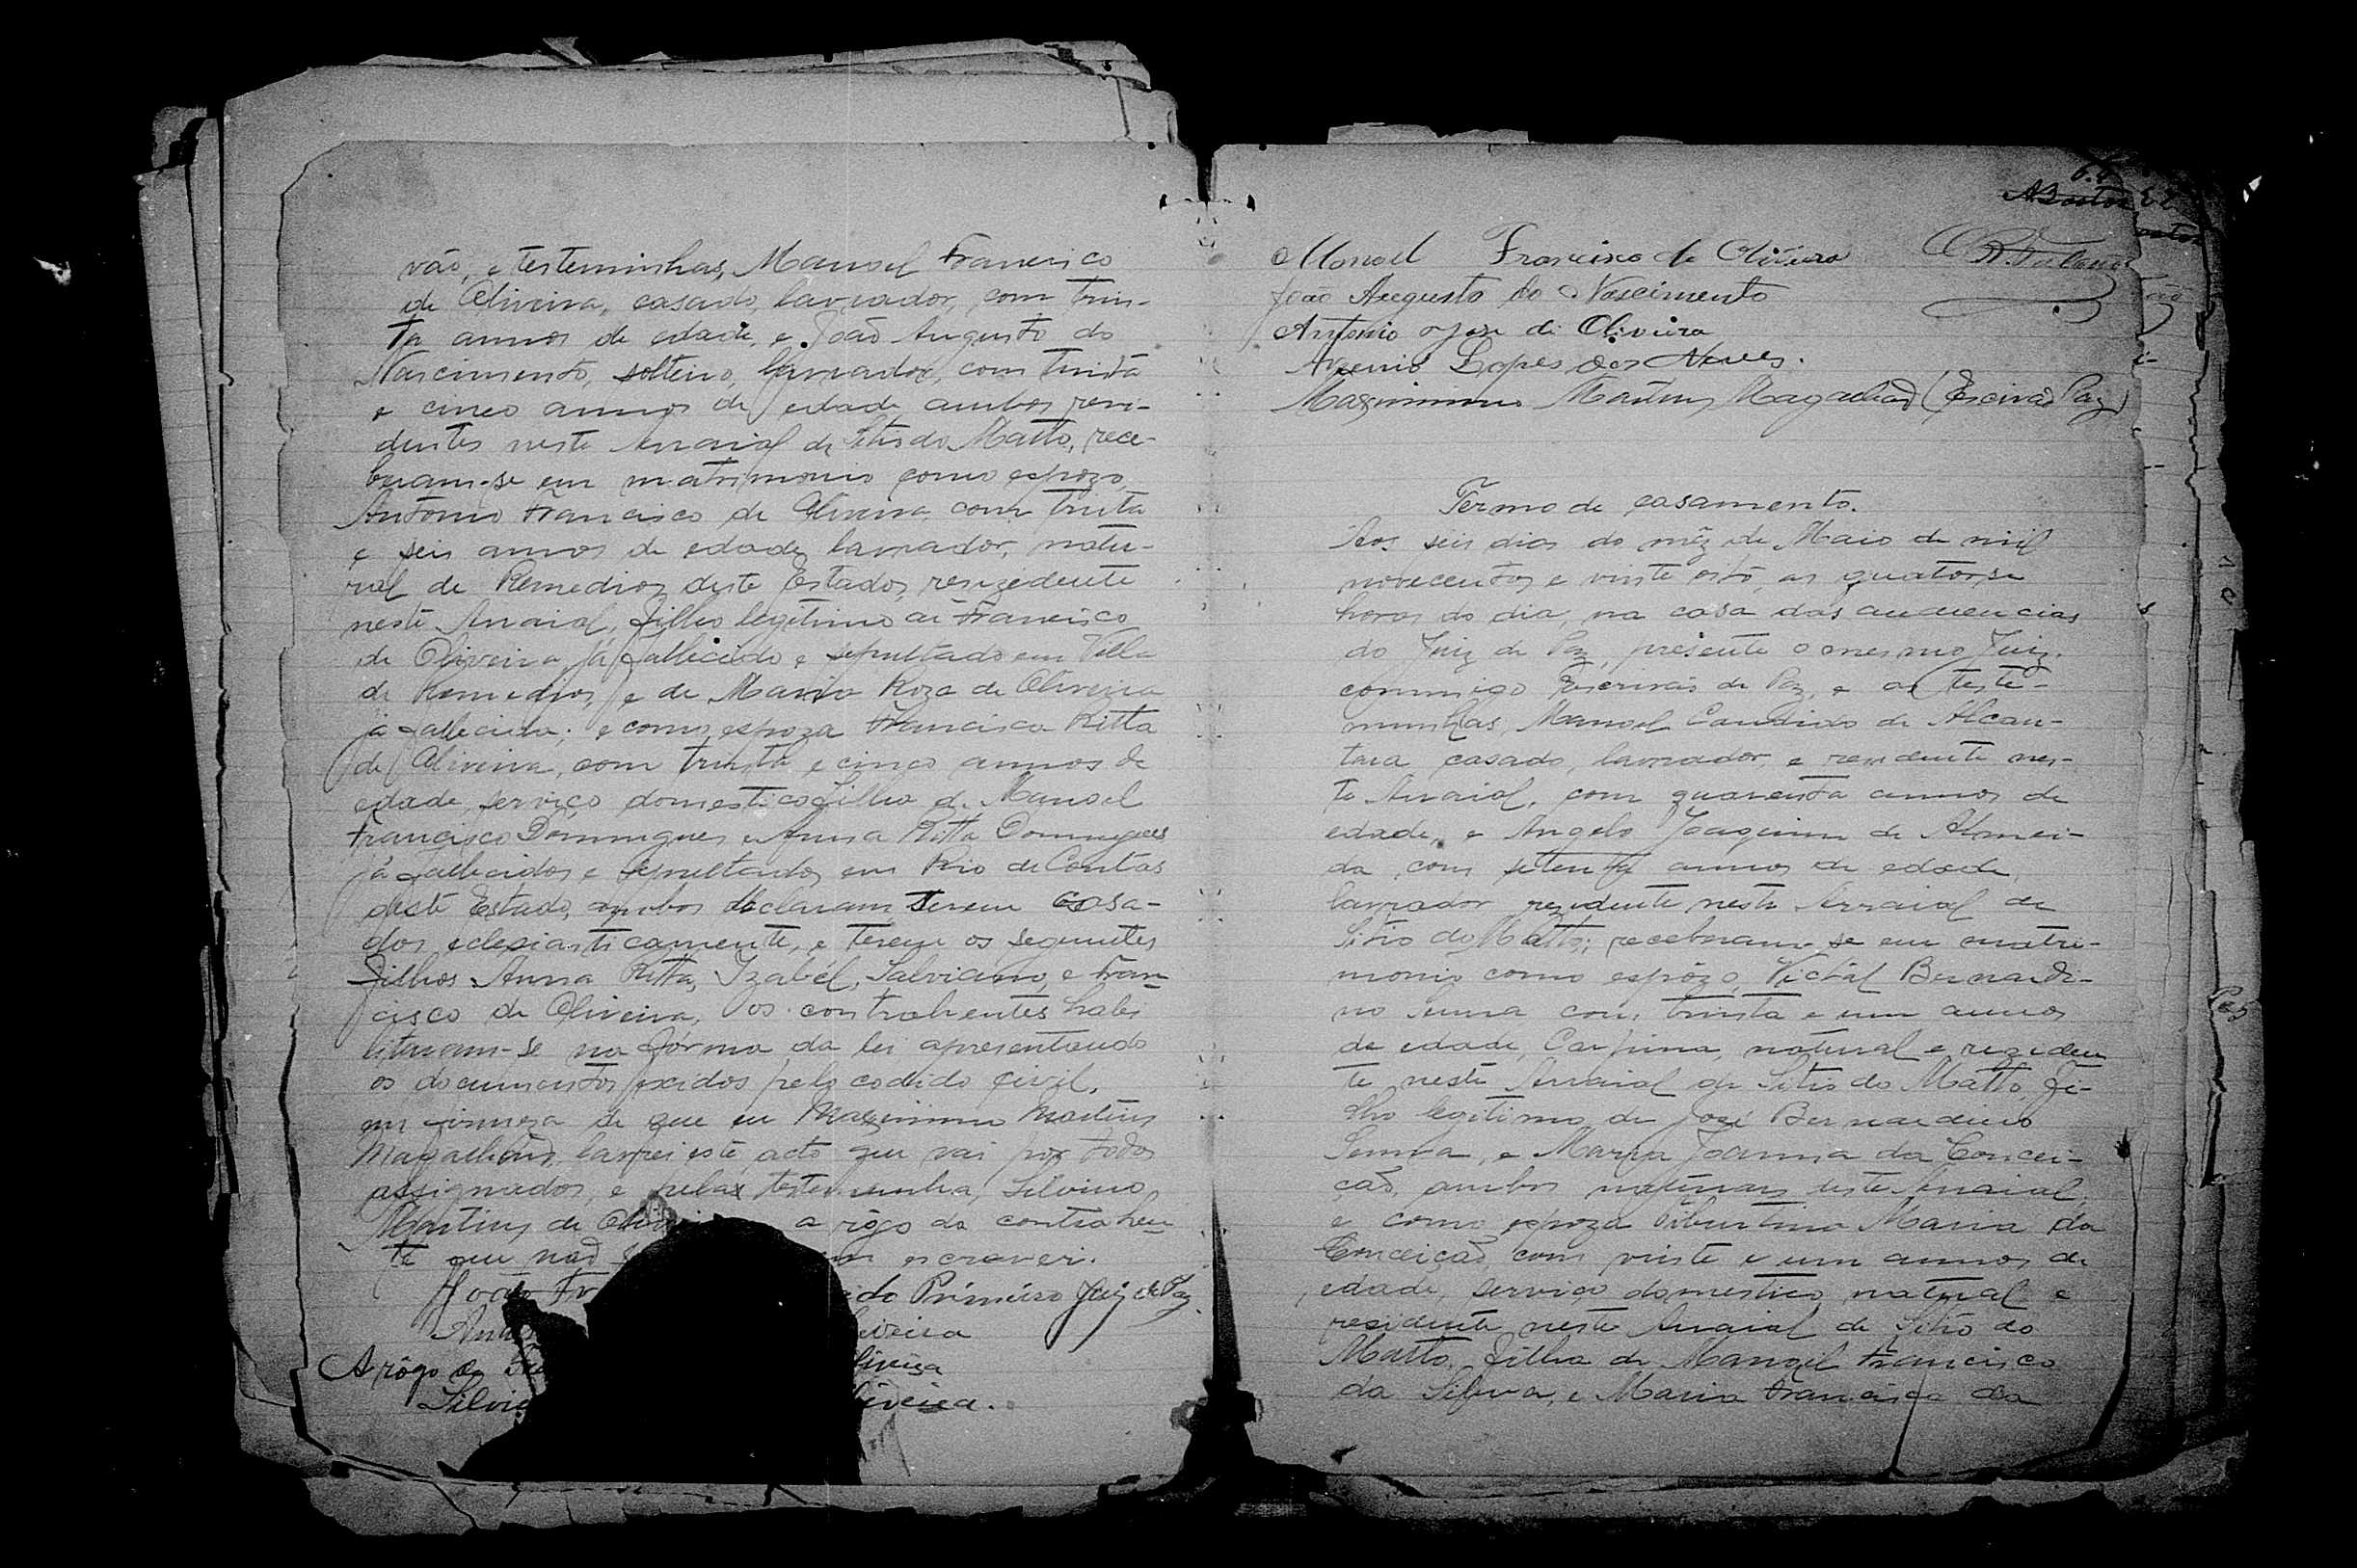 vão, e testeminhas, Manoel Francisco
de Oliveira, casado, lavrador, com trin-
ta annos de edade, e João Augusto do
Nascimento, solteiro, lavrador, com trinta
e cinco annos de edade ambos resi-
dentes neste Arraial de Sitio do Matto, rece-
beram-se em matrimonio como espozo
Antonio Francisco de Oliveira com trinta
e seis annos de edade, lavrador, natu-
ral de Remedios deste Estado, resizedente
neste Arraial, filho legitimo de Francisco
de Oliveira, já fallecido e sepultado em Villa
de Remedios, e de Maria Roza de Oliveira
já fallecida; e como espoza Francisca Ritta
de Oliveira, com trinta e cinco annos de
edade, serviço domestico filha de Manoel
Francisco Domingues e Anna Ritta Domingues
já fallecidos e sepultados em Rio de Contas
deste Estado, ambos declaram serem casa-
dos eclesiasticamente, e terem os seguintes
filhos Anna Ritta, Izabél, Salviano, e Fran-
cisco de Oliveira, os contrahentes habi
litaram-se na forma da lei apresentando
os documentos exidos pelo codido civil.
em firmeza de que eu Maximino Martins
Magalhães, lavrei este acto que vai por todos
assignados, e pelas testemunha, Silvino
Martins de a rôgo da contrahen
te que não escrever.
João do Primeiro Juiz de Paz
A rôgo de
Manoel Francisco de Oliveira
João Augusto do Nascimento
Antonio Jose de Oliveira
Arsenio Lopes das Neves.
Maximino Martins Magalhães (Escrivão Paz)
Termo de casamento.
Aos seis dias do mêz de Maio de mil
novecentos e vinte oito, as quatorse
horas do dia, na casa das audiencias
do Juiz de Paz, presente o mesmo Juiz,
commigo Escrivão de Paz, e as teste-
munhas, Manoel Candido de Alcan-
tara casado, lavrador, e residente nes-
te Arraial, com quarenta annos de
edade, e Angelo Joaquim de Almei-
da, com setenta annos de edade,
lavrador rezidente neste Arraial de
Sitio do Matto; receberam-se em matri-
monio como espôzo, Victal Bernardi-
no Senna com trinta e um annos
de edade, Carpina, natural e reziden
te neste Arraial de Sitio do Matto, fi-
lho legitimo de José Bernardino
Senna, e Maria Joanna da Concei-
ção, ambos naturais deste Arraial,
e como espoza Tiburtina Maria da
Conceição, com vinte e um annos de
edade, serviço domestico natural e
residente neste Arraial de Sitio do
Matto, filha de Manoel Francisco
da Silva, e Maria Francisca da